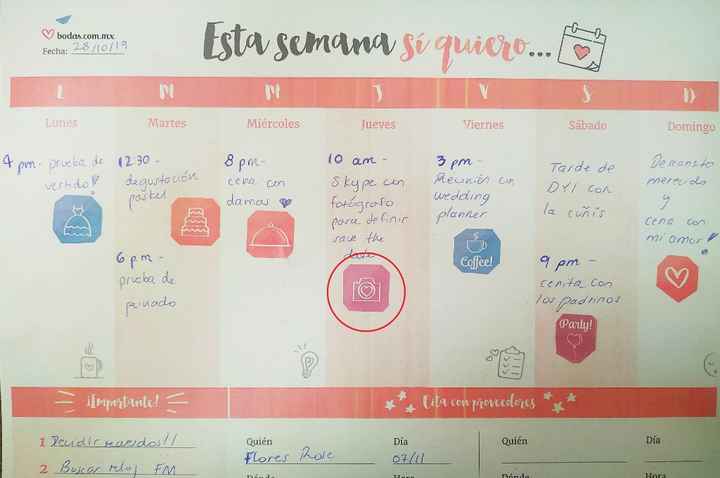 bodas.com.mx
Fecha: 28/10/19
Esta semana sí quiero...
L M M J V S D
Lunes Martes Miércoles Jueves Viernes Sábado Domingo
4 pm- prueba de
vestido
12:30 -
degustación
pastel
6 pm -
prueba de
peinado
8 pm-
cena con
damas
10 am -
Skype con
fotógrafo
para definir
save the
date
3 pm -
Reunión con
wedding
planner
Coffee!
Tarde de
DYI con
la cuñis
9 pm -
cenita con
los padrinos
Party!
Descansito
merecido
y
cena con
mi amor
¡Importante!
1 Decidir recuerdos!!
2 Buscar reloj FM
Cita con proveedores
Quién Día Quién Día
Flores 07/11
Dónde Hora Dónde Hora